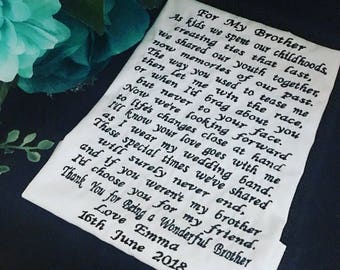 For My Brother
As kids we spent our childhoods,
creating ties that last,
we shared our youth together,
now memories of our past.
The way you used to tease me
then let me win the race
or when I'd brag about you
but never to your face.
Now were looking forward
to life's changes close at hand
I'll know your love goes with me
as I wear my wedding band.
These special times we've shared
will surely never end,
and if you weren't my brother
I'd choose you for my friend.
Thank You for Being a Wonderful Brother
Love Emma
16th June 2018